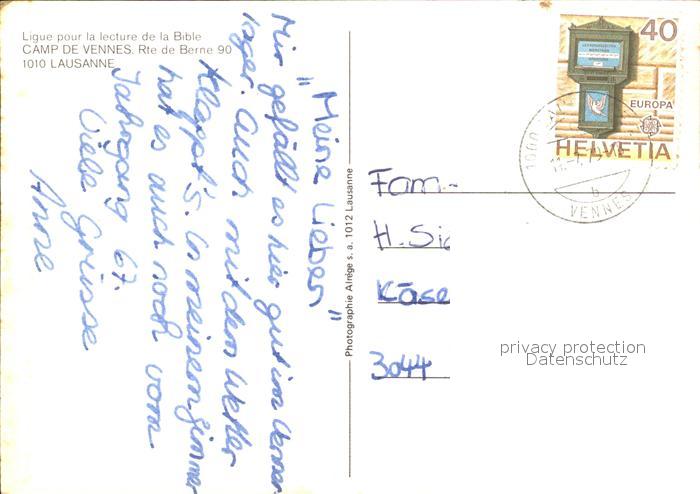 Ligue pour la lecture de la Bible
CAMP DE VENNES. Rte de Berne 90
1010 LAUSANNE
"Meine Lieben"
Mir gefällt es hier gut im Venner-
lager. Auch mit dem Wetter
klappt's. In meinem Zimmer
hat es auch noch vom
Jahrgang 67.
Liebe Grüsse
Anne
Photographie Alrège s. a. 1012 Lausanne
40
EUROPA
HELVETIA
1000
VENNES
b
Fam.
H. Si
Käse
3044
privacy protection
Datenschutz